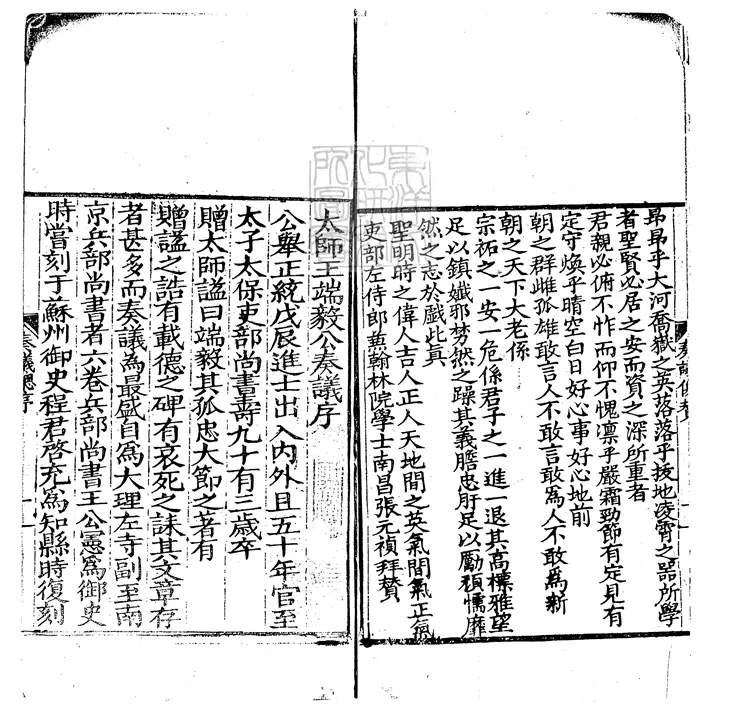 昻昻乎大河喬嶽之英落落乎拔地淩霄之器所學
者聖賢必居之安而資之深所重者
君親必俯不怍而仰不愧凛乎嚴霜勁節有定見有
定守煥乎晴空白日好心事好心地前
朝之群雌孤雄敢言人不敢言敢為人不敢為新
朝之天下大老係
宗祏之一安一危係君子之一進一退其高標雅望
足以鎮孅邪棼然之躁其義膽忠肝足以勵頑懦靡
然之志於戲此真
聖明時之偉人吉人正人天地間之英氣間氣正氣
吏部左侍郎蕪翰林院學士南昌張元禎拜賛
太師王端毅公奏議序
公舉正統戊辰進士出入内外且五十年官至
太子太保吏部尚書壽九十有三歲卒
贈太師謚曰端毅其孤忠大節之著有
贈謚之誥有載德之碑有哀死之誄其文章存
者甚多而奏議為最盛自為大理左寺副至南
京兵部尚書者六卷兵部尚書王公憲為御史
時嘗刻于蘇州御史程君啓充為知縣時復刻
奏議總序